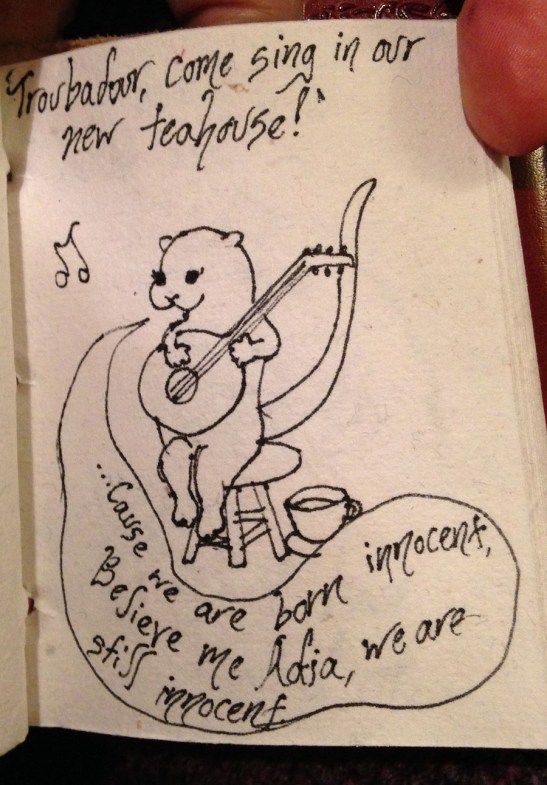 'Troubadour, come sing in our
new teahouse!'
...Cause we are born innocent,
Believe me Adia, we are
still innocent.